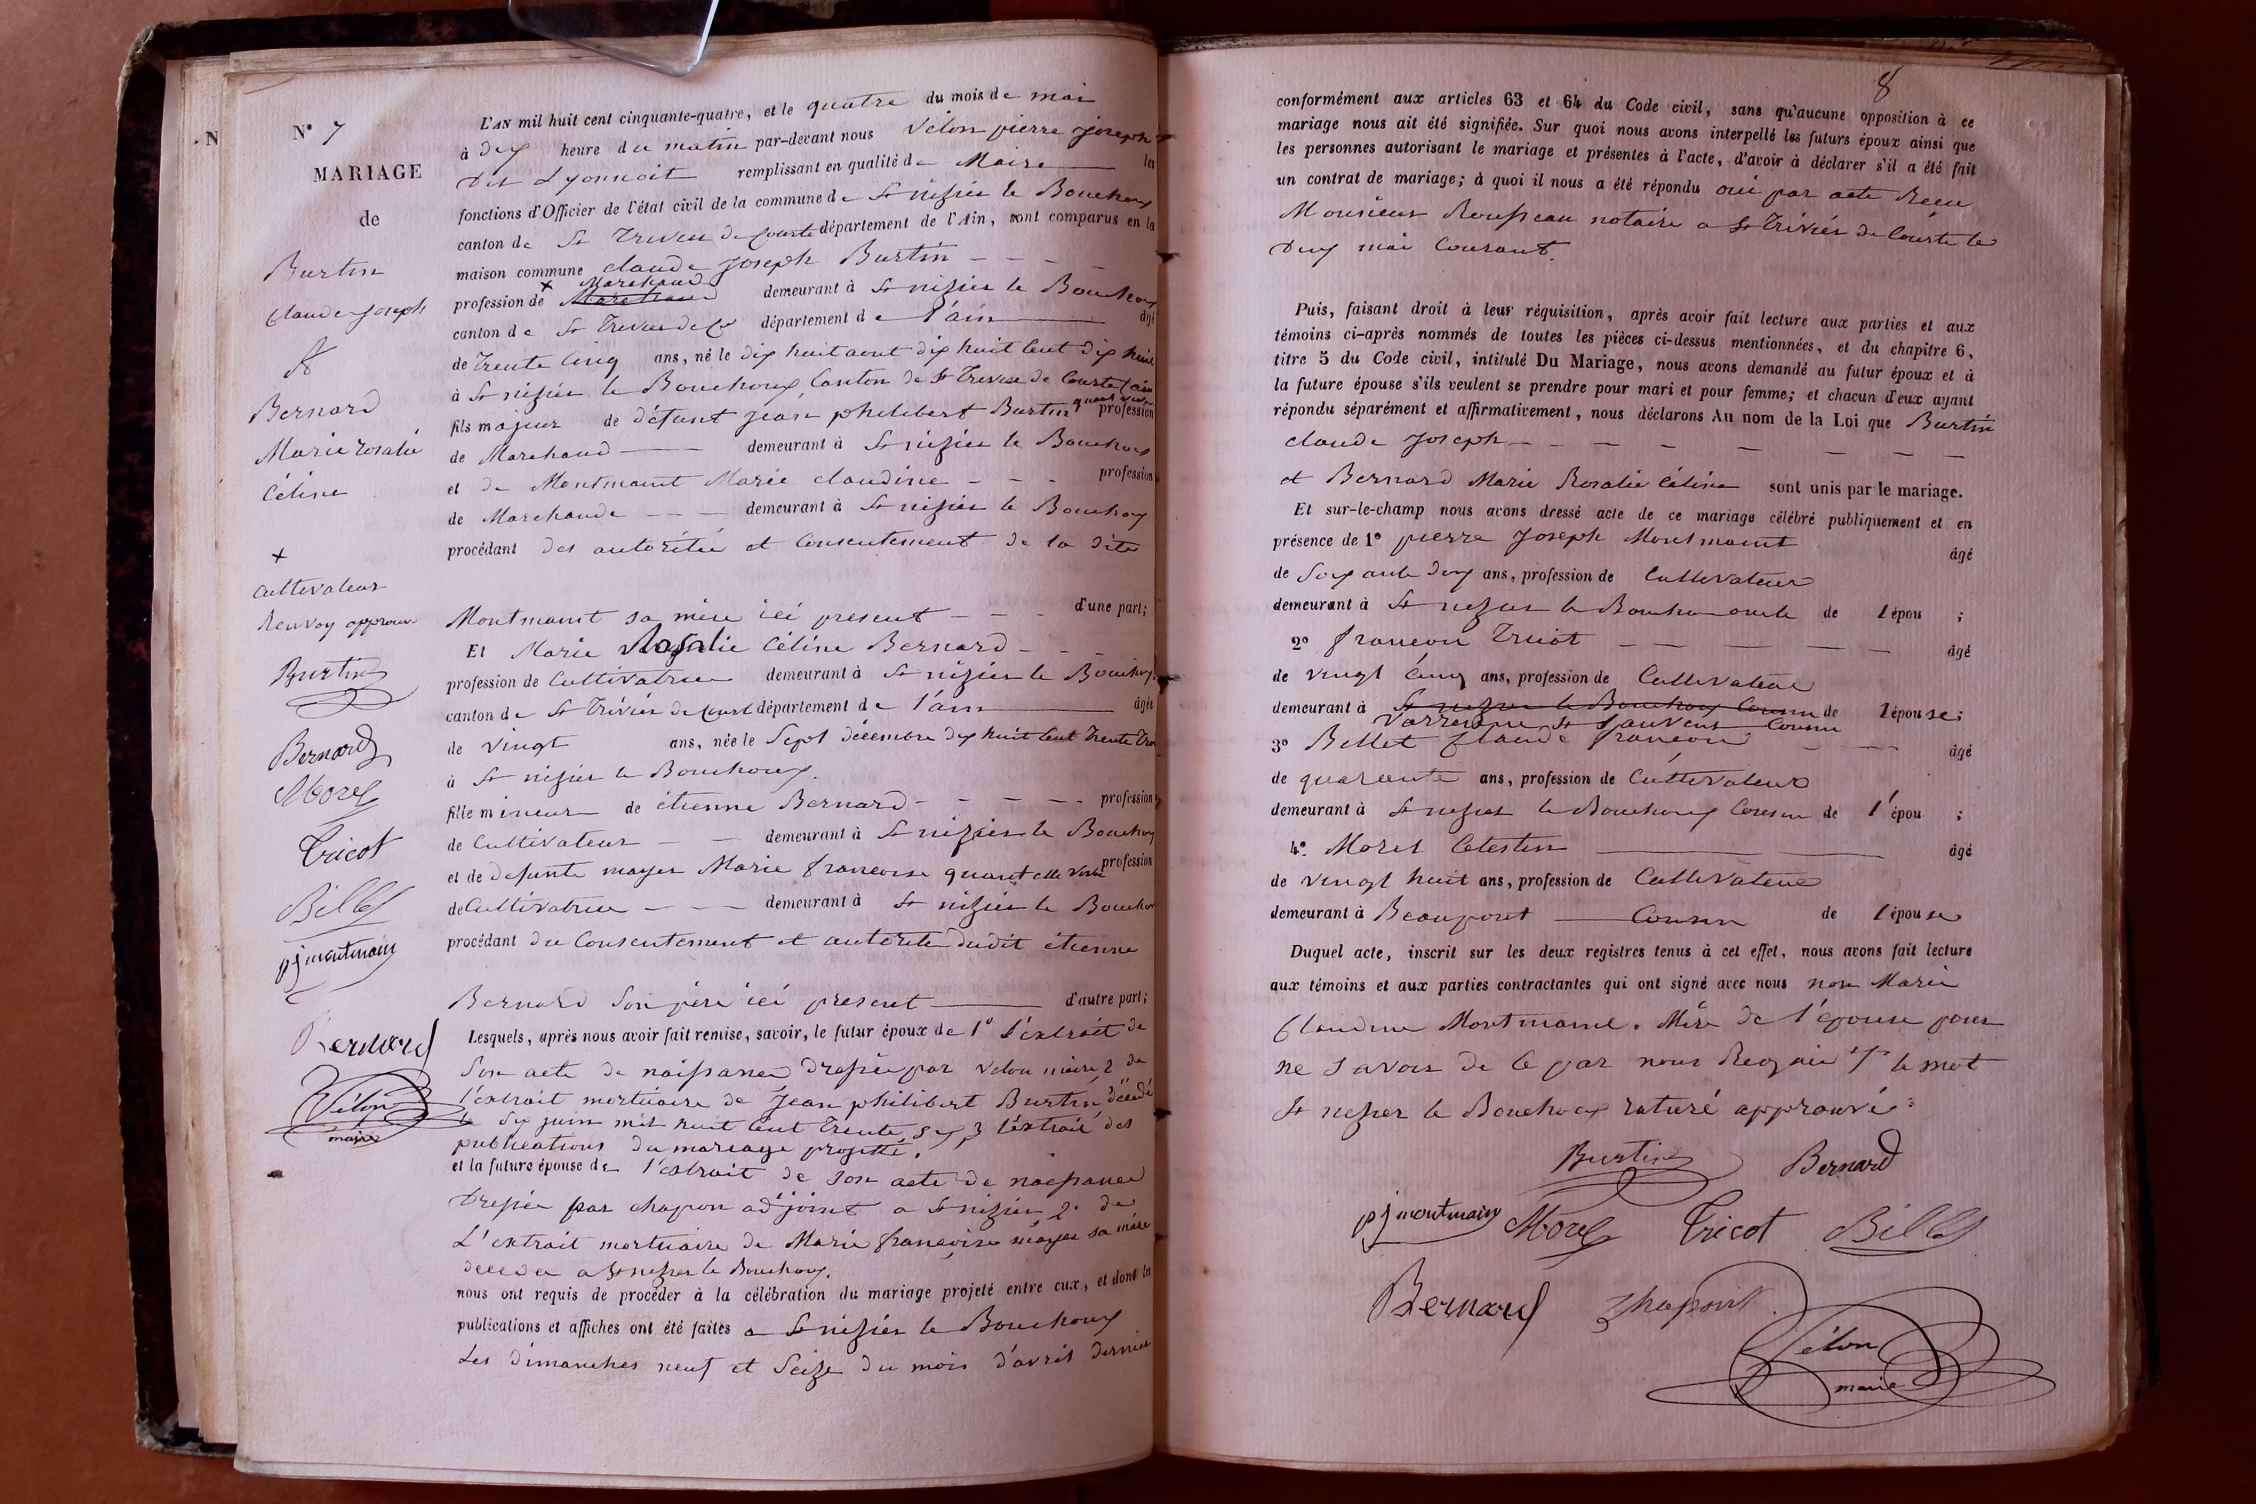 N
N° 7
MARIAGE
de
Burtin
Claude Joseph
&
Bernard
Marie rosalie
Céline
+
cultivateur
Renvoy approuvé
Burtin
Bernard
Morel
Tricot
Billet
pj montmain
Bernard
Vélon
maire
L'AN mil huit cent cinquante-quatre, et le quatre du mois de mai
à dix heure du matin par-devant nous Vélon pierre Joseph
dit Lyonnoit remplissant en qualité de Maire les
fonctions d'Officier de l'état civil de la commune de St nizier le Bouchoux
canton de St Trivier de Courte département de l'Ain, sont comparus en la
maison commune claude Joseph Burtin
+ Marchand
profession de Marchand demeurant à St nizier le Bouchoux
canton de St Trivier de Cte département de l'ain âgé
de Trente Cinq ans, né le dix huit aout dix huit Cent dix huit
à St nizier le Bouchoux Canton de St Trivier de Courte (ain
fils majeur de défunt jean philibert Burtin quant vivoit profession
de Marchand demeurant à St nizier le Bouchoux
et de Montmaint Marie claudine profession
de Marchande demeurant à St nizier le Bouchoux
procédant des autorité et Consentement de la dite
Montmaint sa mère ici present d'une part;
Et Marie Rosalie Céline Bernard
profession de Cultivatrice demeurant à St nizier le Bouchoux
canton de St Trivier de Court département de l'ain âgée
de vingt ans, née le Sept décembre dix huit Cent Trente Trois
à St nizier le Bouchoux.
fille mineur de étienne Bernard profession
de Cultivateur demeurant à St nizier le Bouchoux
et de defunte mayer Marie francoise quant elle vivoit profession
de Cultivatrice demeurant à St nizier le Bouchoux
procédant du Consentement et autorité dudit étienne
Bernard Son père ici present d'autre part;
Lesquels, après nous avoir fait remise, savoir, le futur époux de 1° l'extrait de
Son acte de naissance dressée par Velon maire 2 de
l'extrait mortuaire de Jean philibert Burtin décédé
le dix juin mil huit Cent Trente six 3 l'extrait des
publications du mariage projetté.
et la future épouse de l'extrait de son acte de naissance
Dressée par chapon adjoint a St nizier 2. de
L'extrait mortuaire de Marie françoise mayer sa mère
décédée a St nizier le Bouchoux.
nous ont requis de procéder à la célébration du mariage projeté entre eux, et dont les
publications et affiches ont été faites a St nizier le Bouchoux
Les dimanches neuf et Seize du mois d'avril dernier
8
conformément aux articles 63 et 64 du Code civil, sans qu'aucune opposition à ce
mariage nous ait été signifiée. Sur quoi nous avons interpellé les futurs époux ainsi que
les personnes autorisant le mariage et présentes à l'acte, d'avoir à déclarer s'il a été fait
un contrat de mariage; à quoi il nous a été répondu oui par acte Recu
Monsieur Rousseau notaire a St Trivier de Courte le
deux mai Courant.
Puis, faisant droit à leur réquisition, après avoir fait lecture aux parties et aux
témoins ci-après nommés de toutes les pièces ci-dessus mentionnées, et du chapitre 6,
titre 5 du Code civil, intitulé Du Mariage, nous avons demandé au futur époux et à
la future épouse s'ils veulent se prendre pour mari et pour femme; et chacun d'eux ayant
répondu séparément et affirmativement, nous déclarons Au nom de la Loi que Burtin
claude Joseph
et Bernard Marie Rosalie Céline sont unis par le mariage.
Et sur-le-champ nous avons dressé acte de ce mariage célébré publiquement et en
présence de 1° pierre Joseph Montmaint âgé
de Soixante dix ans, profession de Cultivateur
demeurant à St nizier le Bouchoux oncle de l'épou ;
2° francois Tricot âgé
de vingt Cinq ans, profession de Cultivateur
demeurant à St nizier le Bouchoux Cousin de l'épouse;
Varrenne St Sauveur Cousin
3° Billet Claude francois âgé
de quarante ans, profession de Cultivateur
demeurant à St nizier le Bouchoux Cousin de l'épou ;
4° Morel Celestin âgé
de vingt huit ans, profession de Cultivateur
demeurant à Beaupont Cousin de l'épouse
Duquel acte, inscrit sur les deux registres tenus à cet effet, nous avons fait lecture
aux témoins et aux parties contractantes qui ont signé avec nous non Marie
Claudine Montmaint. Mère de l'épouse pour
ne savoir de Ce par nous Requis le mot
St nizier le Bouchoux raturé approuvé
Burtin Bernard
pj montmain Morel Tricot Billet
Bernard
Vélon
maire